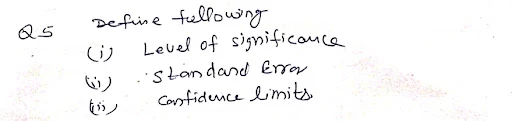 Q5 Define following
(i) Level of significance
(ii) Standard Error
(iii) Confidence limits